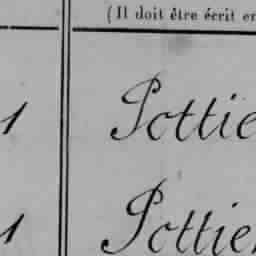 (Il doit être écrit en
1 Pottie
1 Pottier